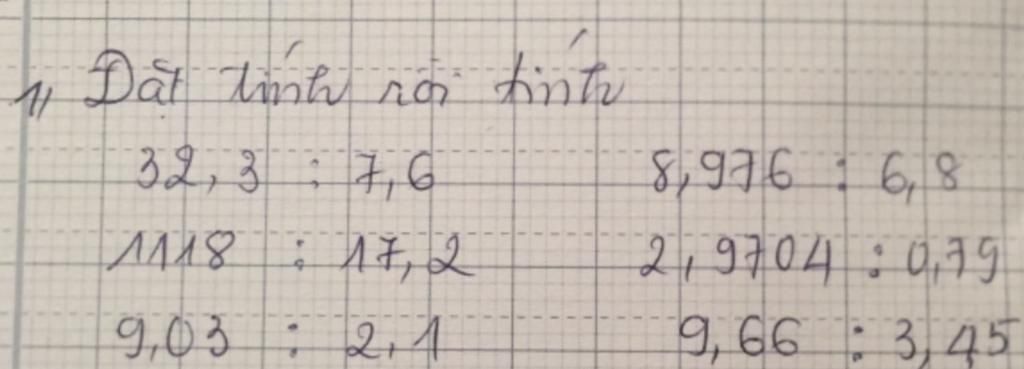 1, Đặt tính rồi tính
32,3 : 7,6 8,976 : 6,8
1118 : 17,2 2,9704 : 0,79
9,03 : 2,1 9,66 : 3,45